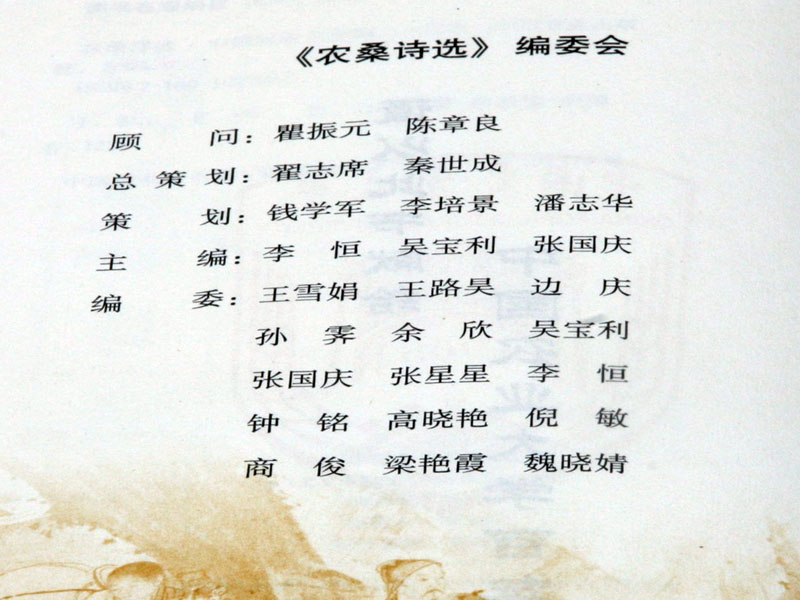 《农桑诗选》 编委会
顾 问：瞿振元 陈章良
总 策 划：翟志席 秦世成
策 划：钱学军 李培景 潘志华
主 编：李 恒 吴宝利 张国庆
编 委：王雪娟 王路昊 边 庆
孙 霁 余 欣 吴宝利
张国庆 张星星 李 恒
钟 铭 高晓艳 倪 敏
商 俊 梁艳霞 魏晓婧